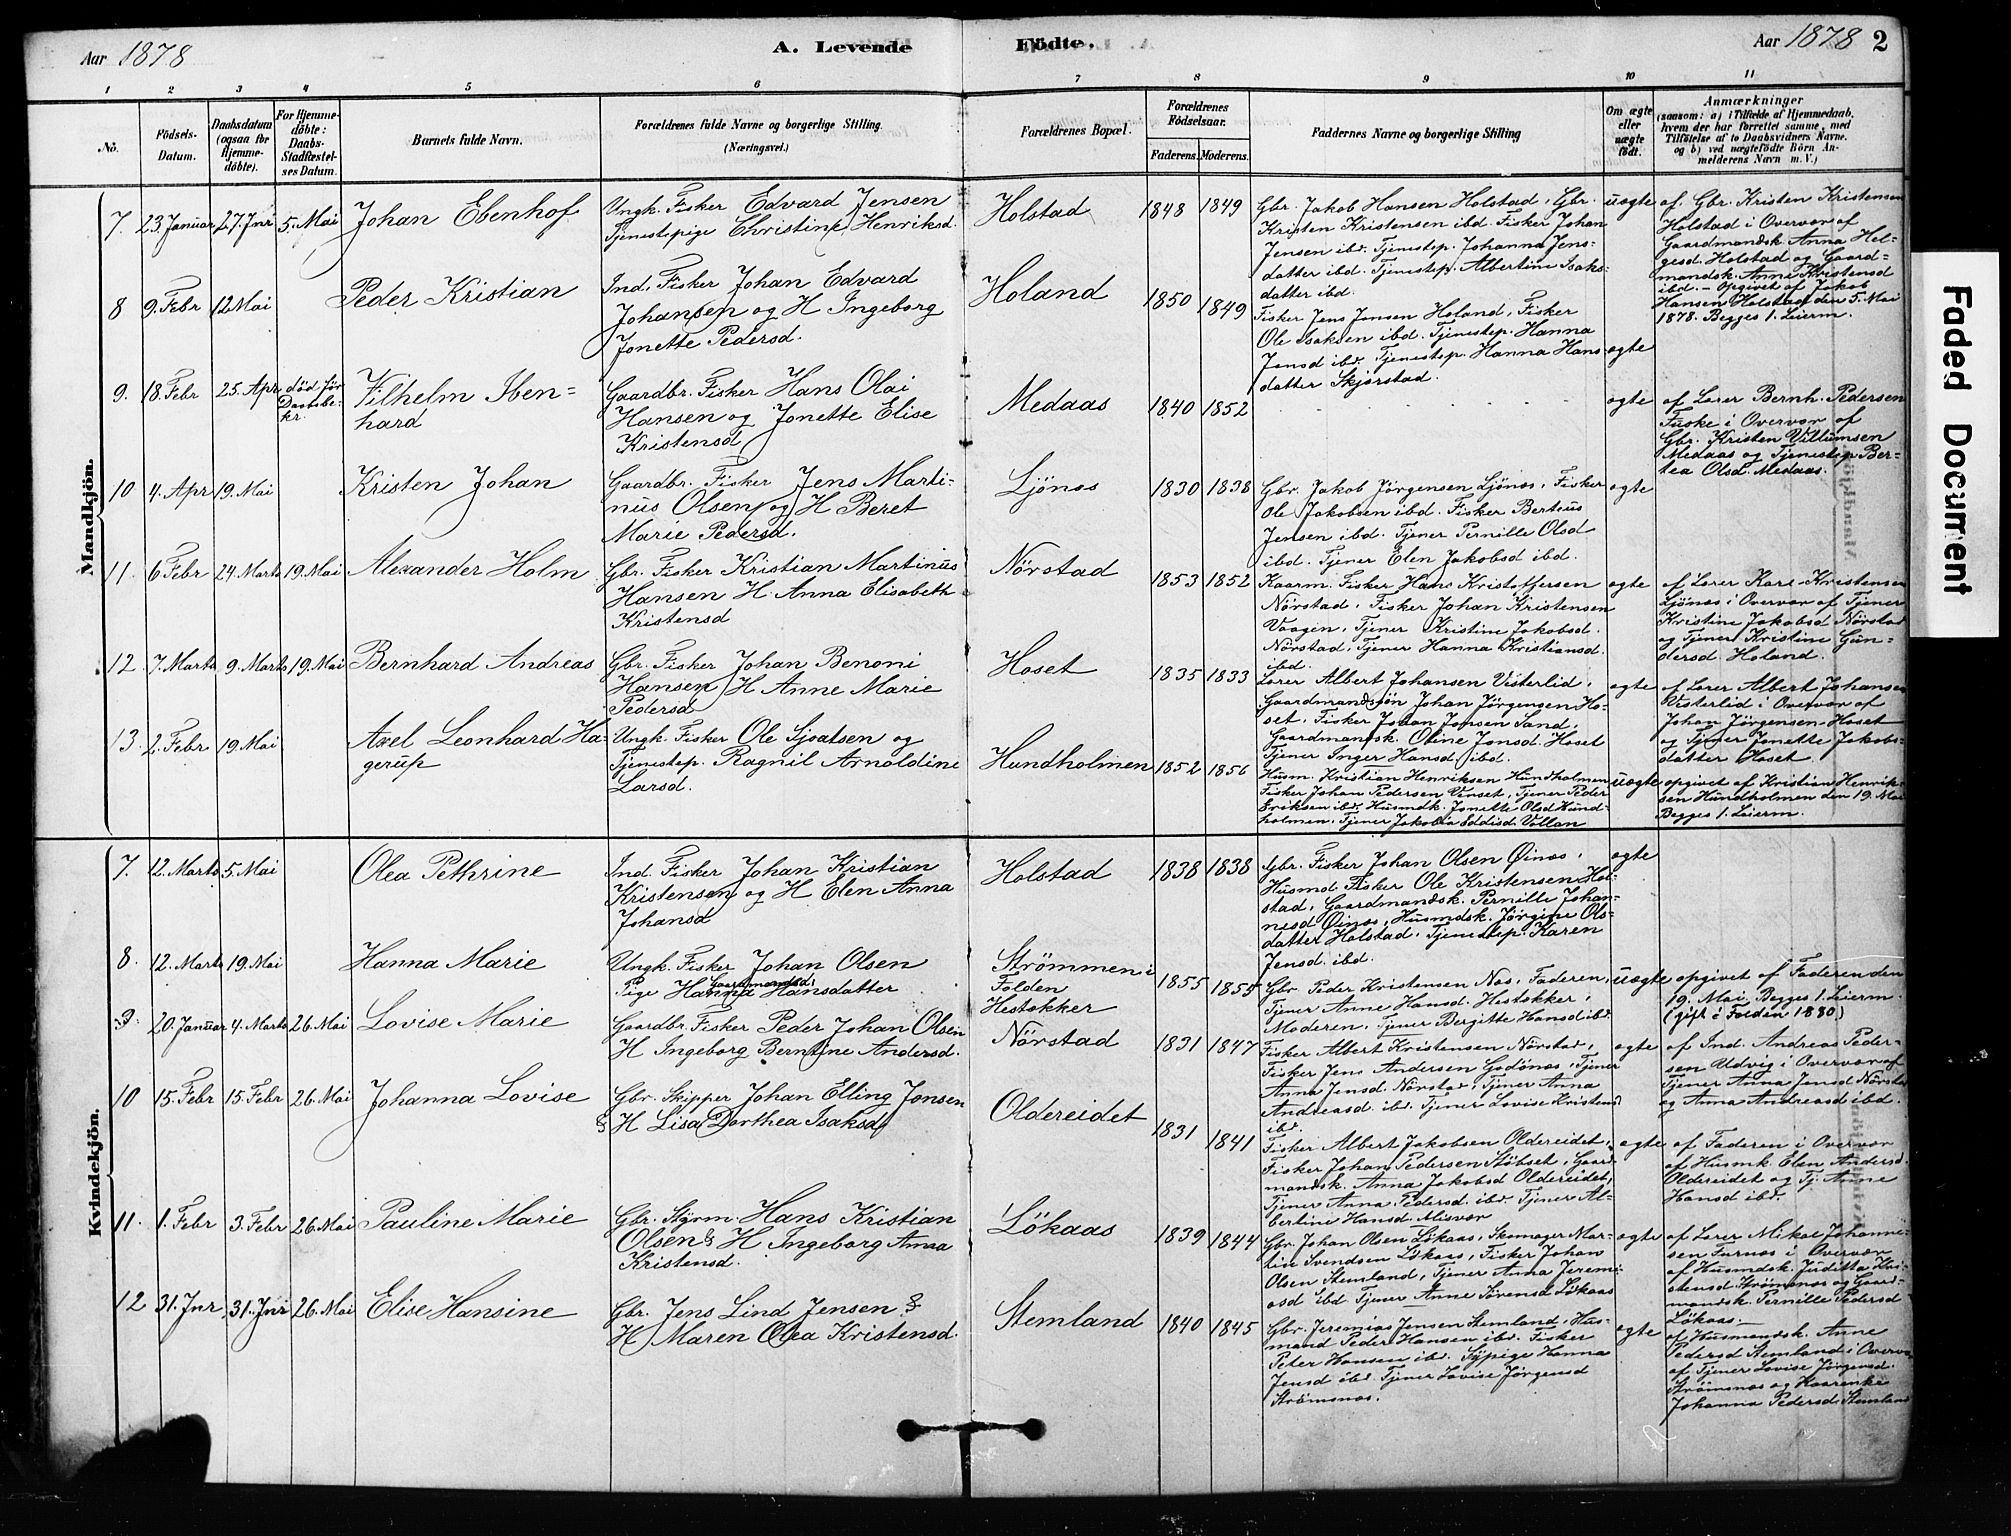 Aar 1878
A. Levende
Födte.
Aar 1878
2
1 2 3 4 5 6 7 8 9 10 11
No.
Födsels-
Datum.
Daabsdatum
(ogsaa for
Hjemme-
döbte).
For Hjemme-
döbte:
Daabs-
Stadfæstel-
ses Datum.
Barnets fulde Navn.
Forældrenes fulde Navne og borgerlige Stilling
(Næringsvei.)
Forældrenes Bopæl.
Forældrenes
Födselsaar.
Faderens. Moderens.
Faddernes Navne og borgerlige Stilling
Om ægte
eller
uægte
født.
Anmærkninger
(saasom: a) i Tilfælde af Hjemmedaab,
hvem der har forrettet samme, med
Tilföielse af to Daabsvidners Navne.
og b) ved uægtefödte Börn An-
melderens Navn m. V.)
Mandkjön.
7. 23 Januar 27 Jnr 5. Mai Johan Ebenhof
Ungk. Fisker Edvard Jensen
Tjenestepige Christine Henriksd.
Holstad 1848 1849
Gbr. Jakob Hansen Holstad, Gbr.
Kristen Kristensen ibd. Fisker Johan
Jensen ibd. Tjenestep. Johanna Jens-
datter ibd. Tjenestep. Albertine Isaks-
datter ibd.
uægte
af Gbr. Kristen Kristensen
Holstad i Overvær af
Gaardmandsk. Anna Hel-
gesd. Holstad og Gaard-
mandsk. Anne Kristensd
ibd. - Opgivet af Jakob
Hansen Holstad den 5. Mai
1878. Begges 1. Leierm.
8 9. Febr 12 Mai Peder Kristian
Ind. Fisker Johan Edvard
Johansen og H. Ingeborg
Jonette Pedersd.
Holand 1850 1849
Fisker Jens Jonsen Holand, Fisker
Ole Isaksen ibd. Tjenestep. Hanna
Jensd ibd. Tjenestep. Hanna Hans
datter Skjørstad.
ægte
9. 18 Febr 25. Apr død før
Daabsbe-
kr.
Vilhelm Iben-
hard
Gaardbr. Fisker Hans Olai
Hansen og Jonette Elise
Kristensd
Medaas 1840 1852
ægte
af Lærer Bernh. Pedersen
Fuske i Overvær af
Gbr. Kristen Villumsen
Medaas og Tjenestep. Ber-
tea Olsd. Medaas.
10 4. Apr 19. Mai Kristen Johan
Gaardbr. Fisker Jens Marti-
nus Olsen og H Beret
Marie Pedersd.
Ljönes 1830 1838
Gbr. Jakob Jörgensen Ljönes, Fisker
Ole Jakobsen ibd. Fisker Berteus
Jensen ibd. Tjener Pernille Olsd
ibd. Tjener Elen Jakobsd ibd.
ægte
11. 6 Febr 24. Marts 19. Mai Alexander Holm
Gbr. Fisker Kristian Martinus
Hansen H. Anna Elisabeth
Kristensd
Nörstad 1853 1852
Kaarm. Fisker Hans Kristoffersen
Nörstad, Fisker Johan Kristensen
Vaagen, Tjener Kristine Jakobsd.
Nörstad, Tjener Hanna Kristiansd.
ibd.
ægte
af Lærer Karl Kristensen
Ljönes i Overvær af Tjener
Kristine Jakobsd Nörstad
og Tjener Kristine Gun-
dersd. Holand.
12 7. Marts 9. Marts 19. Mai Bernhard Andreas
Gbr. Fisker Johan Benoni
Hansen H Anne Marie
Pedersd
Hoset 1835 1833
Lærer Albert Johansen Visterlid,
Gaardmandsøn Johan Jörgensen Ho-
set, Fisker Johan Jonsen Sand,
Gaardmandsk. Oline Jonsd. Hoset
Tjener Inger Hansd ibd.
ægte
af Lærer Albert Johansen
Visterlid i Overvær af
Johan Jörgensen Hoset
og Tjener Jonette Jakobs-
datter Hoset
13 2. Febr 19. Mai Axel Leonhard Ha-
gerup
Ungk. Fisker Ole Sjoatsen og
Tjenestep. Ragnil Arnoldine
Larsd.
Hundholmen 1852 1856
Husm. Kristian Henriksen Hundholmen
Fisker Johan Pedersen Venset, Tjener Peder
Eriksen ibd, Husmdk. Jonette Olsd Hund-
holmen, Tjener Jakobia Eddisd. Vollan
uægte
opgivet af Kristian Henrik-
sen Hundholmen den 19. Mai
Begges 1. Leierm.
Kvindekjön.
7. 12. Marts 5. Mai Olea Pethrine
Ind. Fisker Johan Kristian
Kristensen og H Elen Anna
Johansd
Holstad 1838 1838
Gbr. Fisker Johan Olsen Øines,
Husmd Fisker Ole Kristensen Hol-
stad, Gaardmandsk. Pernille Johan-
nesd Øines, Husmdsk. Jörgine Ols-
datter Holstad, Tjenestep. Karen
Jensd. ibd.
ægte
8. 12. Marts 19. Mai Hanna Marie
Ungk. Fisker Johan Olsen
Gaardmandsd.
Pige Hanna Hansdatter
Strömmen i
Folden
Hestokker
1855 1855
Gbr. Peder Kristensen Nes, Faderen,
Tjener Anne Hansd. Hestokker,
Moderen, Tjener Bergitte Hansd ibd.
uægte
opgivet af Faderen den
19. Mai. Begges 1. Leierm.
(gift i Folden 1880)
9. 20. Januar 4. Marts 26 Mai Lovise Marie
Gaardbr. Fisker Peder Johan Olsen
H Ingeborg Berntine Andersd.
Nörstad 1831 1847
Fisker Albert Kristensen Nörstad,
Fisker Jens Andersen Godönes, Tjener
Anna Jensd. Nörstad, Tjener Anna
Andreasd ibd. Tjener Lovise Kristensd
ibd.
ægte
af Ind. Andreas Peder-
sen Udvig i Overvær af
Tjener Anna Jensd Nörstad
og Anna Andreasd ibd.
10 15. Febr 15. Febr 26. Mai Johanna Lovise
Gbr. Skipper Johan Elling Jonsen
& H Lisa Dorthea Isaksd
Oldereidet 1831 1841
Fisker Albert Jakobsen Oldereidet,
Fisker Johan Pedersen Støbset, Gaard
mandsk. Anna Jakobsd Oldereidet,
Tjener Anna Pedersd. ibd. Tjener Al-
bertine Hansd Misvær
ægte
af Faderen i Overvær
af Husmk Elen Andersd.
Oldereidet og Tj. Anne
Hansd ibd.
11. 1. Febr 3. Febr 26. Mai Pauline Marie
Gbr. Styrm. Hans Kristian
Olsen & H Ingeborg Anna
Kristensd.
Lökaas 1839 1844
Gbr. Johan Olsen Lökaas, Skomager Mar-
tin Svendsen Lökaas, Fisker Johan
Olsen Stemland, Tjener Anna Jeremi-
asd ibd. Tjener Anne Sörensd Lökaas
ægte
af Lærer Mikal Johanne-
sen Furnes i Overvær
af Husmdsk. Juditta Kri-
stensd Strömsnes og Gaard-
mandsk. Pernille Pedersd
Lökaas.
12 31. Jnr 31. Jnr 26. Mai Elise Hansine
Gbr. Jens Lind Jensen &
H Maren Olea Kristensd.
Stemland 1840 1845
Gbr. Jeremias Jensen Stemland, Hus-
mand Peder Hansen ibd. Fisker
Peter Hansen ibd. Sypige Hanna
Jensd ibd. Tjener Lovise Jörgensd
Strömsnes.
ægte
af Husmandsk. Anne
Pedersd Stemland i Overvær
af Tjener Lovise Jörgensd.
Strömsnes og Kaarenke
Johanna Pedersd Stemland
Faded Document